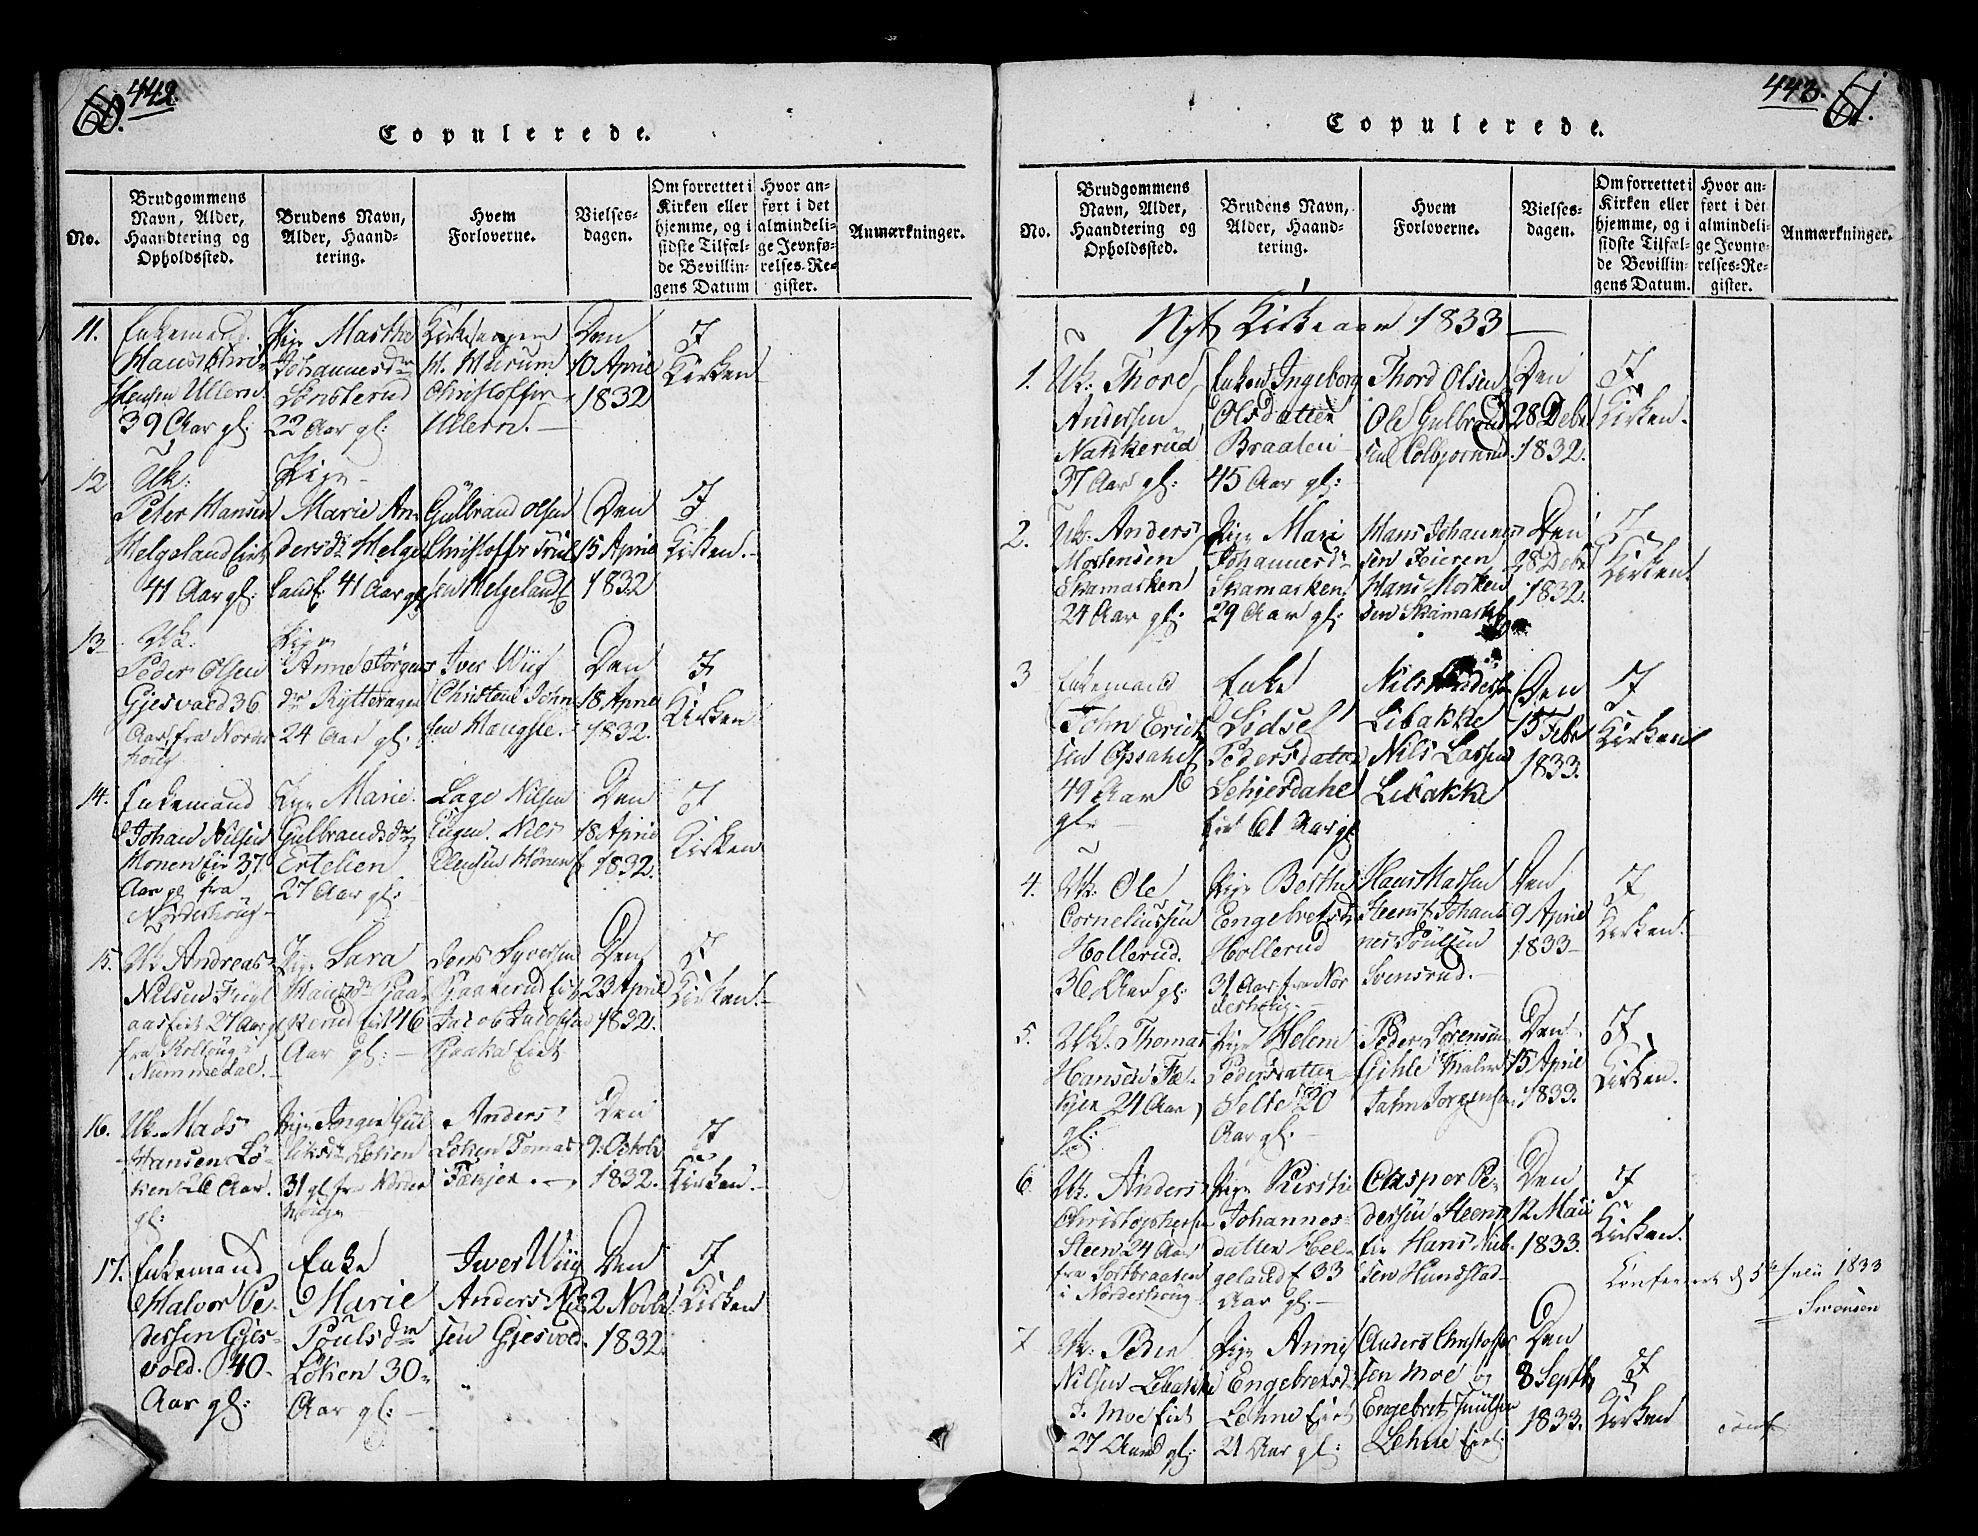 60. 442
Copulerede.
No.
Brudgommens
Navn, Alder,
Haandtering og
Opholdssted.
Brudens Navn,
Alder, Haand-
tering.
Hvem
Forloverne.
Vielses-
dagen.
Om forrettet i
Kirken eller
hjemme, og i
sidste Tilfæl-
de Bevillin-
gens Datum
Hvor an-
ført i det
almindeli-
ge Jevnfø-
relses-Re-
gister.
Anmærkninger.
11.
Enkemand
Hans Chri-
stensen Ullern
39 Aar gl:
Pige Marthe
Johannesdr
22 Aar gl:
Kirkesanger
H. Murum
Christoffer
Ullern. —
Den
10 April
1832
I
Kirken
12
Uk:
Peter Hansen
Helgeland Eiet
41 Aar gl:
Pige
Marie An-
dersdr Helge
land f: 41 Aar gl
Gulbrand Olsen
Christoffr
sen Helgeland
Den
15 April
1832
I
Kirken.
13
Uk.
Peder Olsen
Gjesvold 36
Aar fra Norder
houg
Pige
Anne Jørgens
dr Rytteragen
24 Aar gl.
Iver Wiig
Christen John
sen Haugsle.
Den
18 April
1832.
I
Kirken
14.
Enkemand
Johan Nilsen
Monen Eie 37
Aar gl fra
Norderhoug
Pige Marie
Gulbrandsdr
Ertelien
27 Aar gl:
Lage Nilsen
Nils
Den
18 April
1832.
I
Kirken
15.
Uk Andreas
Nilsen
aas eiet 27 Aar gl
fra
Nummedal.
Pige Sara
Hansdr Gjaar
Aar gl: —
Jens Syversen
Jacob Jacobsen
Den
23 April
1832.
I
Kirken.
16.
Uk. Mads
Hansen Lø-
ken 26 Aar.
gl:
Pige Inger Gul
liksdr Løken
31 gl fra Norder
houg
Anders
Løken Tomas
Den
9 Octobr
1832.
I
Kirken.
17.
Enkemand
Halvor Pe-
dersen Gjes-
vold. 40
Aar gl:
Enke
Marie
Poulsdr
Løken 30
Aar gl: —
Iver Wiig
Anders Nil
sen Gjesvold.
Den
2 Novbr.
1832.
I
Kirken
443. 61.
Copulerede.
No.
Brudgommens
Navn, Alder,
Haandtering og
Opholdssted.
Brudens Navn,
Alder, Haand-
tering.
Hvem
Forloverne.
Vielses-
dagen.
Om forrettet i
Kirken eller
hjemme, og i
sidste Tilfæl-
de Bevillin-
gens Datum.
Hvor an-
ført i det
almindeli-
ge Jevnfø-
relses-Re-
gister.
Anmærkninger.
Nyt Kirkeaar 1833 —
1.
Uk: Thore
Andersen
Nakkerud
37 Aar gl:
Enken Ingeborg
Olsdatter
Braaten
45 Aar gl:
Thord Olsen
Ole Gulbrand
sen Colbjørnrud
Den
28 Debr
1832.
I
Kirken.
2.
Uk: Anders
Mortensen
Skamarken
24 Aar gl:
Pige Mari
Johannesdr
Skamarken
29 Aar gl:
Hans Johannes
sen Feieren
Hans Morten
sen Skamarken
Den
28 Debr
1832.
I
Kirken
3
Enkemand
John Erich
sen Opsahl
49 Aar
gl.
Enke
Sidsel
Pedersdatter
Schjerdahl
Eie 61 Aar gl
Nils Andersen
Libakke
Nils Larsen
Libakke
Den
15 Febr
1833.
I
Kirken
4.
Uk: Ole
Corneliussen
Hollerud.
36 Aar gl:
Pige Berthe
Engebretsdr
Hollerud
31 Aar fra Nor
derhoug
Hans Hansen
Steens f. Johan
nes Poulsen
Svensrud. —
Den
9 April
1833 —
I
Kirken.
5.
Uk: Thomas
Hansen Fæ-
kjer 24 Aar
gl:
Pige Helene
Pedersdatter
Selte 20
Aar gl: —
Peder Sørensen
Gihle
Jahn Jørgensen
Den
15 April
1833.
I
Kirken.
6
Uk. Anders
Christophersen
Steen 24 Aar
fra Solbraaten
i Norderhoug
Pige Kirsti
Johannes-
datter Hel-
geland f 33
Aar gl: —
Casper Pe-
dersen Steens
eie Hans
sen Hundstad
Den
12 Maii
1833.
I
Kirken.
Confereret d 5te Juni 1833
7
Uk. Peder
Nilsen Libakke
Moe Eiet
27 Aar gl:
Pige Anne
Engebretsdr
Lehne Eiet
21 Aar gl:
Anders Christoffer
sen Moe og
Engebret Juulsen
Lehne Eiet
Den
8 Septbr
1833.
I
Kirken
conf